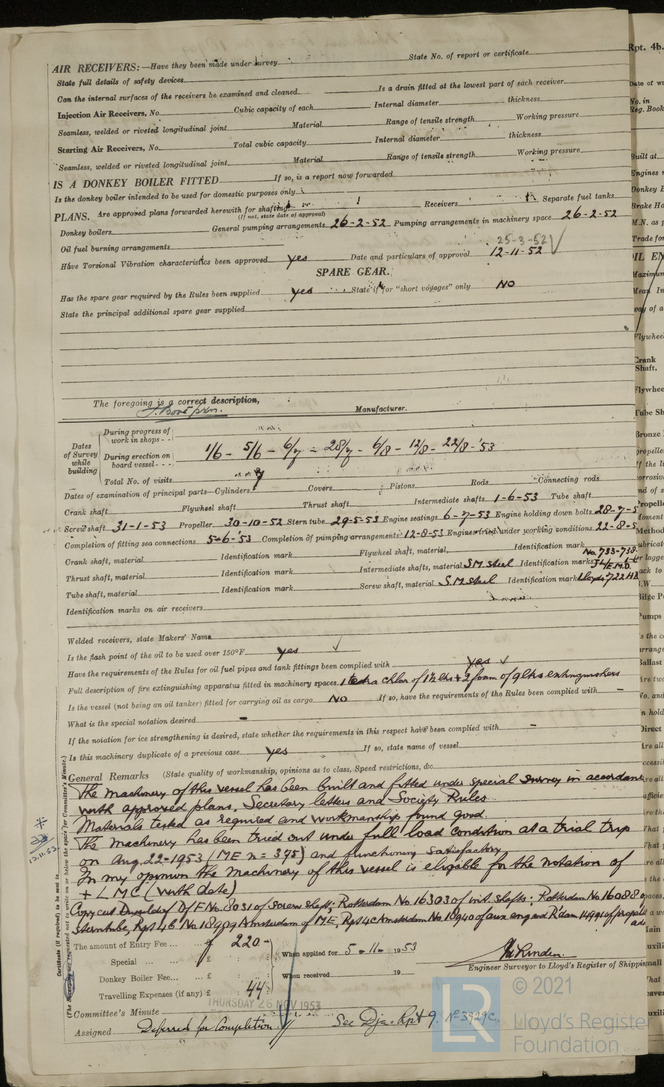 AIR RECEIVERS:—Have they been made under survey State No. of report or certificate
State full details of safety devices
Can the internal surfaces of the receivers be examined and cleaned Is a drain fitted at the lowest part of each receiver
Injection Air Receivers, No. Cubic capacity of each Internal diameter thickness
Seamless, welded or riveted longitudinal joint Material Range of tensile strength Working pressure
Starting Air Receivers, No. Total cubic capacity Internal diameter thickness
Seamless, welded or riveted longitudinal joint Material Range of tensile strength Working pressure
IS A DONKEY BOILER FITTED If so, is a report now forwarded
Is the donkey boiler intended to be used for domestic purposes only
PLANS. Are approved plans forwarded herewith for shafting Receivers Separate fuel tanks
(If not, state date of approval)
Donkey boilers General pumping arrangements 26-2-52 Pumping arrangements in machinery space 26-2-52
Oil fuel burning arrangements 25-3-52
Have Torsional Vibration characteristics been approved yes Date and particulars of approval 12-11-52
SPARE GEAR.
Has the spare gear required by the Rules been supplied yes State if for "short voyages" only NO
State the principal additional spare gear supplied
The foregoing is a correct description,
Manufacturer.
Dates of Survey while building
During progress of work in shops - -
During erection on board vessel - - 1/6 - 5/6 - 6/7 - 28/7 - 6/8 - 12/8 - 22/8 - '53
Total No. of visits 7
Dates of examination of principal parts—Cylinders Covers Pistons Rods Connecting rods
Crank shaft Flywheel shaft Thrust shaft Intermediate shafts 1-6-53 Tube shaft
Screw shaft 31-1-53 Propeller 30-10-52 Stern tube 29-5-53 Engine seatings 6-7-53 Engine holding down bolts 28-7-5
Completion of fitting sea connections 5-6-53 Completion of pumping arrangements 12-8-53 Engines tried under working conditions 22-8-5
Crank shaft, material Identification mark Flywheel shaft, material Identification mark
Thrust shaft, material Identification mark Intermediate shafts, material S.M. steel Identification marks No. 733-738
Tube shaft, material Identification mark Screw shaft, material S.M. Steel Identification mark Lloyds 722 HB
Identification marks on air receivers
Welded receivers, state Makers' Name
Is the flash point of the oil to be used over 150°F yes
Have the requirements of the Rules for oil fuel pipes and tank fittings been complied with yes
Full description of fire extinguishing apparatus fitted in machinery spaces 1 tetra chlor of 1½ ltrs + 2 foam of 9 ltrs extinguishers
Is the vessel (not being an oil tanker) fitted for carrying oil as cargo NO If so, have the requirements of the Rules been complied with
What is the special notation desired
If the notation for ice strengthening is desired, state whether the requirements in this respect have been complied with
Is this machinery duplicate of a previous case yes If so, state name of vessel
General Remarks (State quality of workmanship, opinions as to class, Speed restrictions, &c.
The machinery of this vessel has been built and fitted under special survey in accordance
with approved plans, Secretary letters and Society Rules
Materials tested as required and workmanship found good.
The machinery has been tried out under full load condition at a trial trip
on Aug. 22-1953 (ME n = 375) and functioning satisfactory
In my opinion the machinery of this vessel is eligible for the notation of
+ LMC (with date)
Rotterdam No 16303 of int. shafts; Rotterdam No 16088 of
sterntube, Rpt 4b No 18909 Amsterdam of ME, Rpt 4c Amsterdam No 18940 of aux eng and
The amount of Entry Fee £ 220-
Special £
Donkey Boiler Fee £
Travelling Expenses (if any) £ 44
When applied for 5-11-1953
When received 19
Engineer Surveyor to Lloyd's Register of Shipping
THURSDAY 26 NOV 1953
Committee's Minute
Assigned Deferred for Completion See Dja. Rpt 9. No 3929c
© 2021
LR
Lloyd's Register
Foundation
Rpt. 4b.